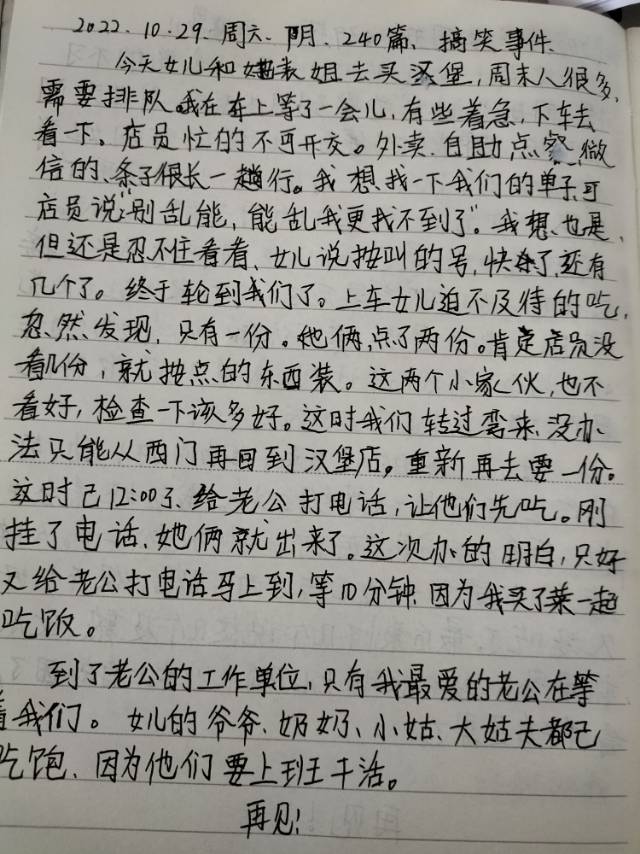 2022.10.29.周六.阴.240篇、搞笑事件.
今天女儿和她表姐去买汉堡,周末人很多,
需要排队。我在车上等了一会儿,有些着急,下车去
看一下。店员忙的不可开交。外卖.自助点餐.微
信的、条子很长一趟行。我想找一下我们的单子,可
店员说:"别乱能,能乱我更找不到了"。我想,也是,
但还是忍不住看看、女儿说按叫的号,快了,还有
几个了。终于轮到我们了。上车女儿迫不及待的吃,
忽然发现,只有一份。她俩,点了两份。肯定店员没
看几份,就按点的东西装。这两个小家伙,也不
看好,检查一下该多好。这时我们转过弯来、没办
法只能从西门再回到汉堡店。重新再去要一份。
这时已12:00了、给老公打电话,让他们先吃。刚
挂了电话、她俩就出来了。这次办的明白,只好
又给老公打电话马上到,等10分钟.因为我买了菜一起
吃饭。
到了老公的工作单位,只有我最爱的老公在等
着我们。女儿的爷爷、奶奶、小姑、大姑夫都已
吃饱、因为他们要上班干活。
再见!